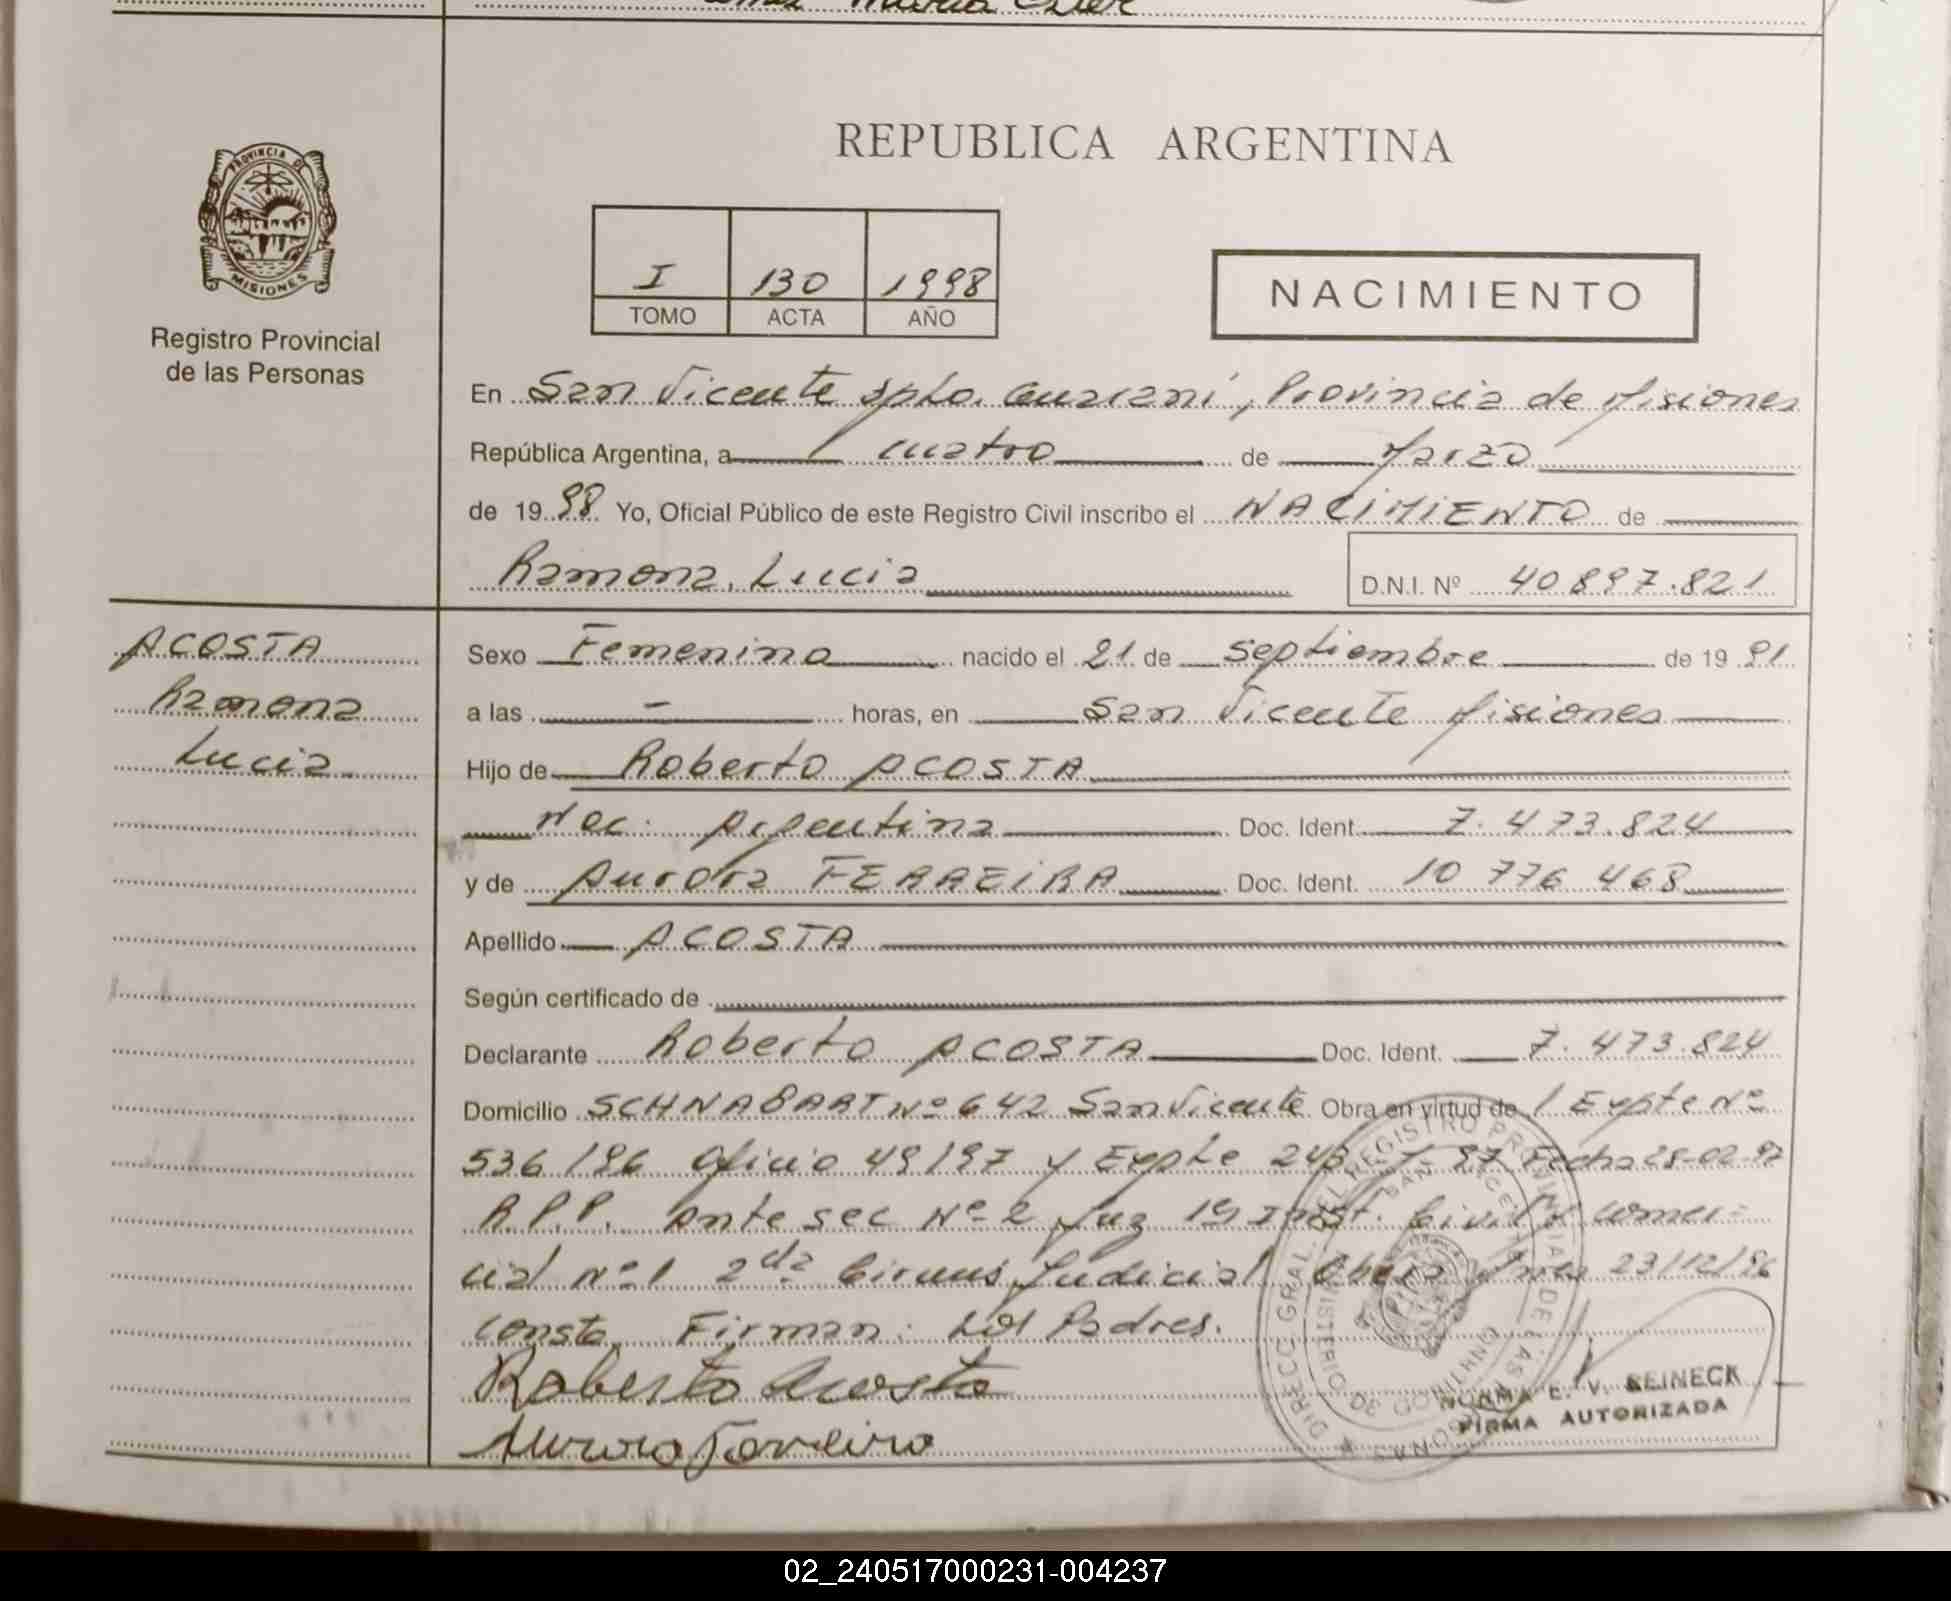 Maria Ester
REPUBLICA ARGENTINA
PROVINCIA DE
MISIONES
Registro Provincial
de las Personas
I 130 1998
TOMO ACTA AÑO
NACIMIENTO
En San Vicente Dpto. Guaraní, Provincia de Misiones
República Argentina, a cuatro de Marzo
de 1998 Yo, Oficial Público de este Registro Civil inscribo el NACIMIENTO de
Ramona, Lucia D.N.I. Nº 40.897.821
ACOSTA
Ramona
Lucia
Sexo Femenino nacido el 21 de septiembre de 1991
a las - horas, en San Vicente Misiones
Hijo de Roberto ACOSTA
Nac. Argentina Doc. Ident. 7.473.824
y de Aurora FERREIRA Doc. Ident. 10 776 468
Apellido ACOSTA
Según certificado de
Declarante Roberto ACOSTA Doc. Ident. 7.473.824
Domicilio Nº 642 San Vicente Obra en virtud de Expte Nº
536/96 Oficio 49/97 y Expte Fecha 28-02-97
R.P.P. Ante sec Nº 2 Juz 1º Inst. Civil y Comer-
cial Nº 1 2da Circuns Judicial Obera Mnes 23/12/96
Conste Firman: Los Padres.
Roberto Acosta
Aurora Ferreira
NORMA E. V. REINECK
FIRMA AUTORIZADA
02_240517000231-004237